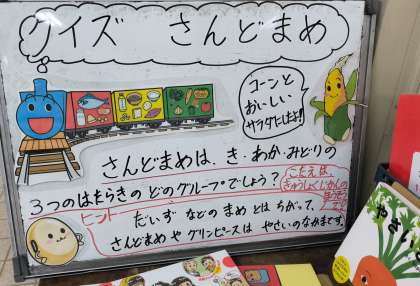 クイズ さんどまめ
コーンと
おいしい
サラダにしたよ!
さんどまめは、き・あか・みどりの
3つのはたらきの どのグループでしょう?
こたえは、
きゅうしょくじかんの
ヒント
だいず などの まめ とは ちがって、
さんどまめ や グリンピースは やさいのなかまです。
やさい